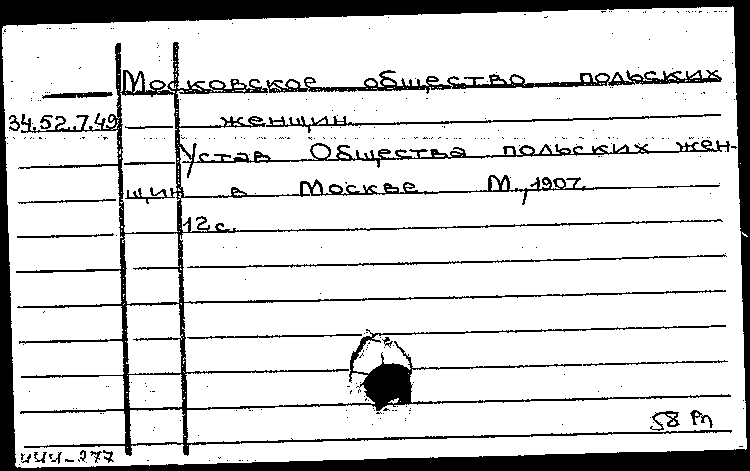 Московское общество польских
34.52.7.49 женщин
Устав Общества польских жен-
щин в Москве. М., 1907.
12 с.
58
444-277